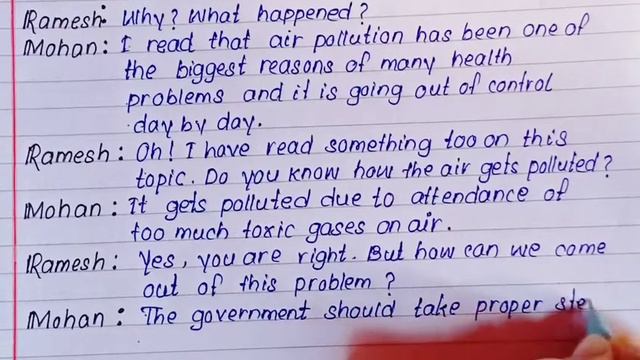 Ramesh: Why? What happened?
Mohan: I read that air pollution has been one of
the biggest reasons of many health
problems and it is going out of control
day by day.
Ramesh: Oh! I have read something too on this
topic. Do you know how the air gets polluted?
Mohan: It gets polluted due to attendance of
too much toxic gases on air.
Ramesh: Yes, you are right. But how can we come
out of this problem?
Mohan: The government should take proper ste